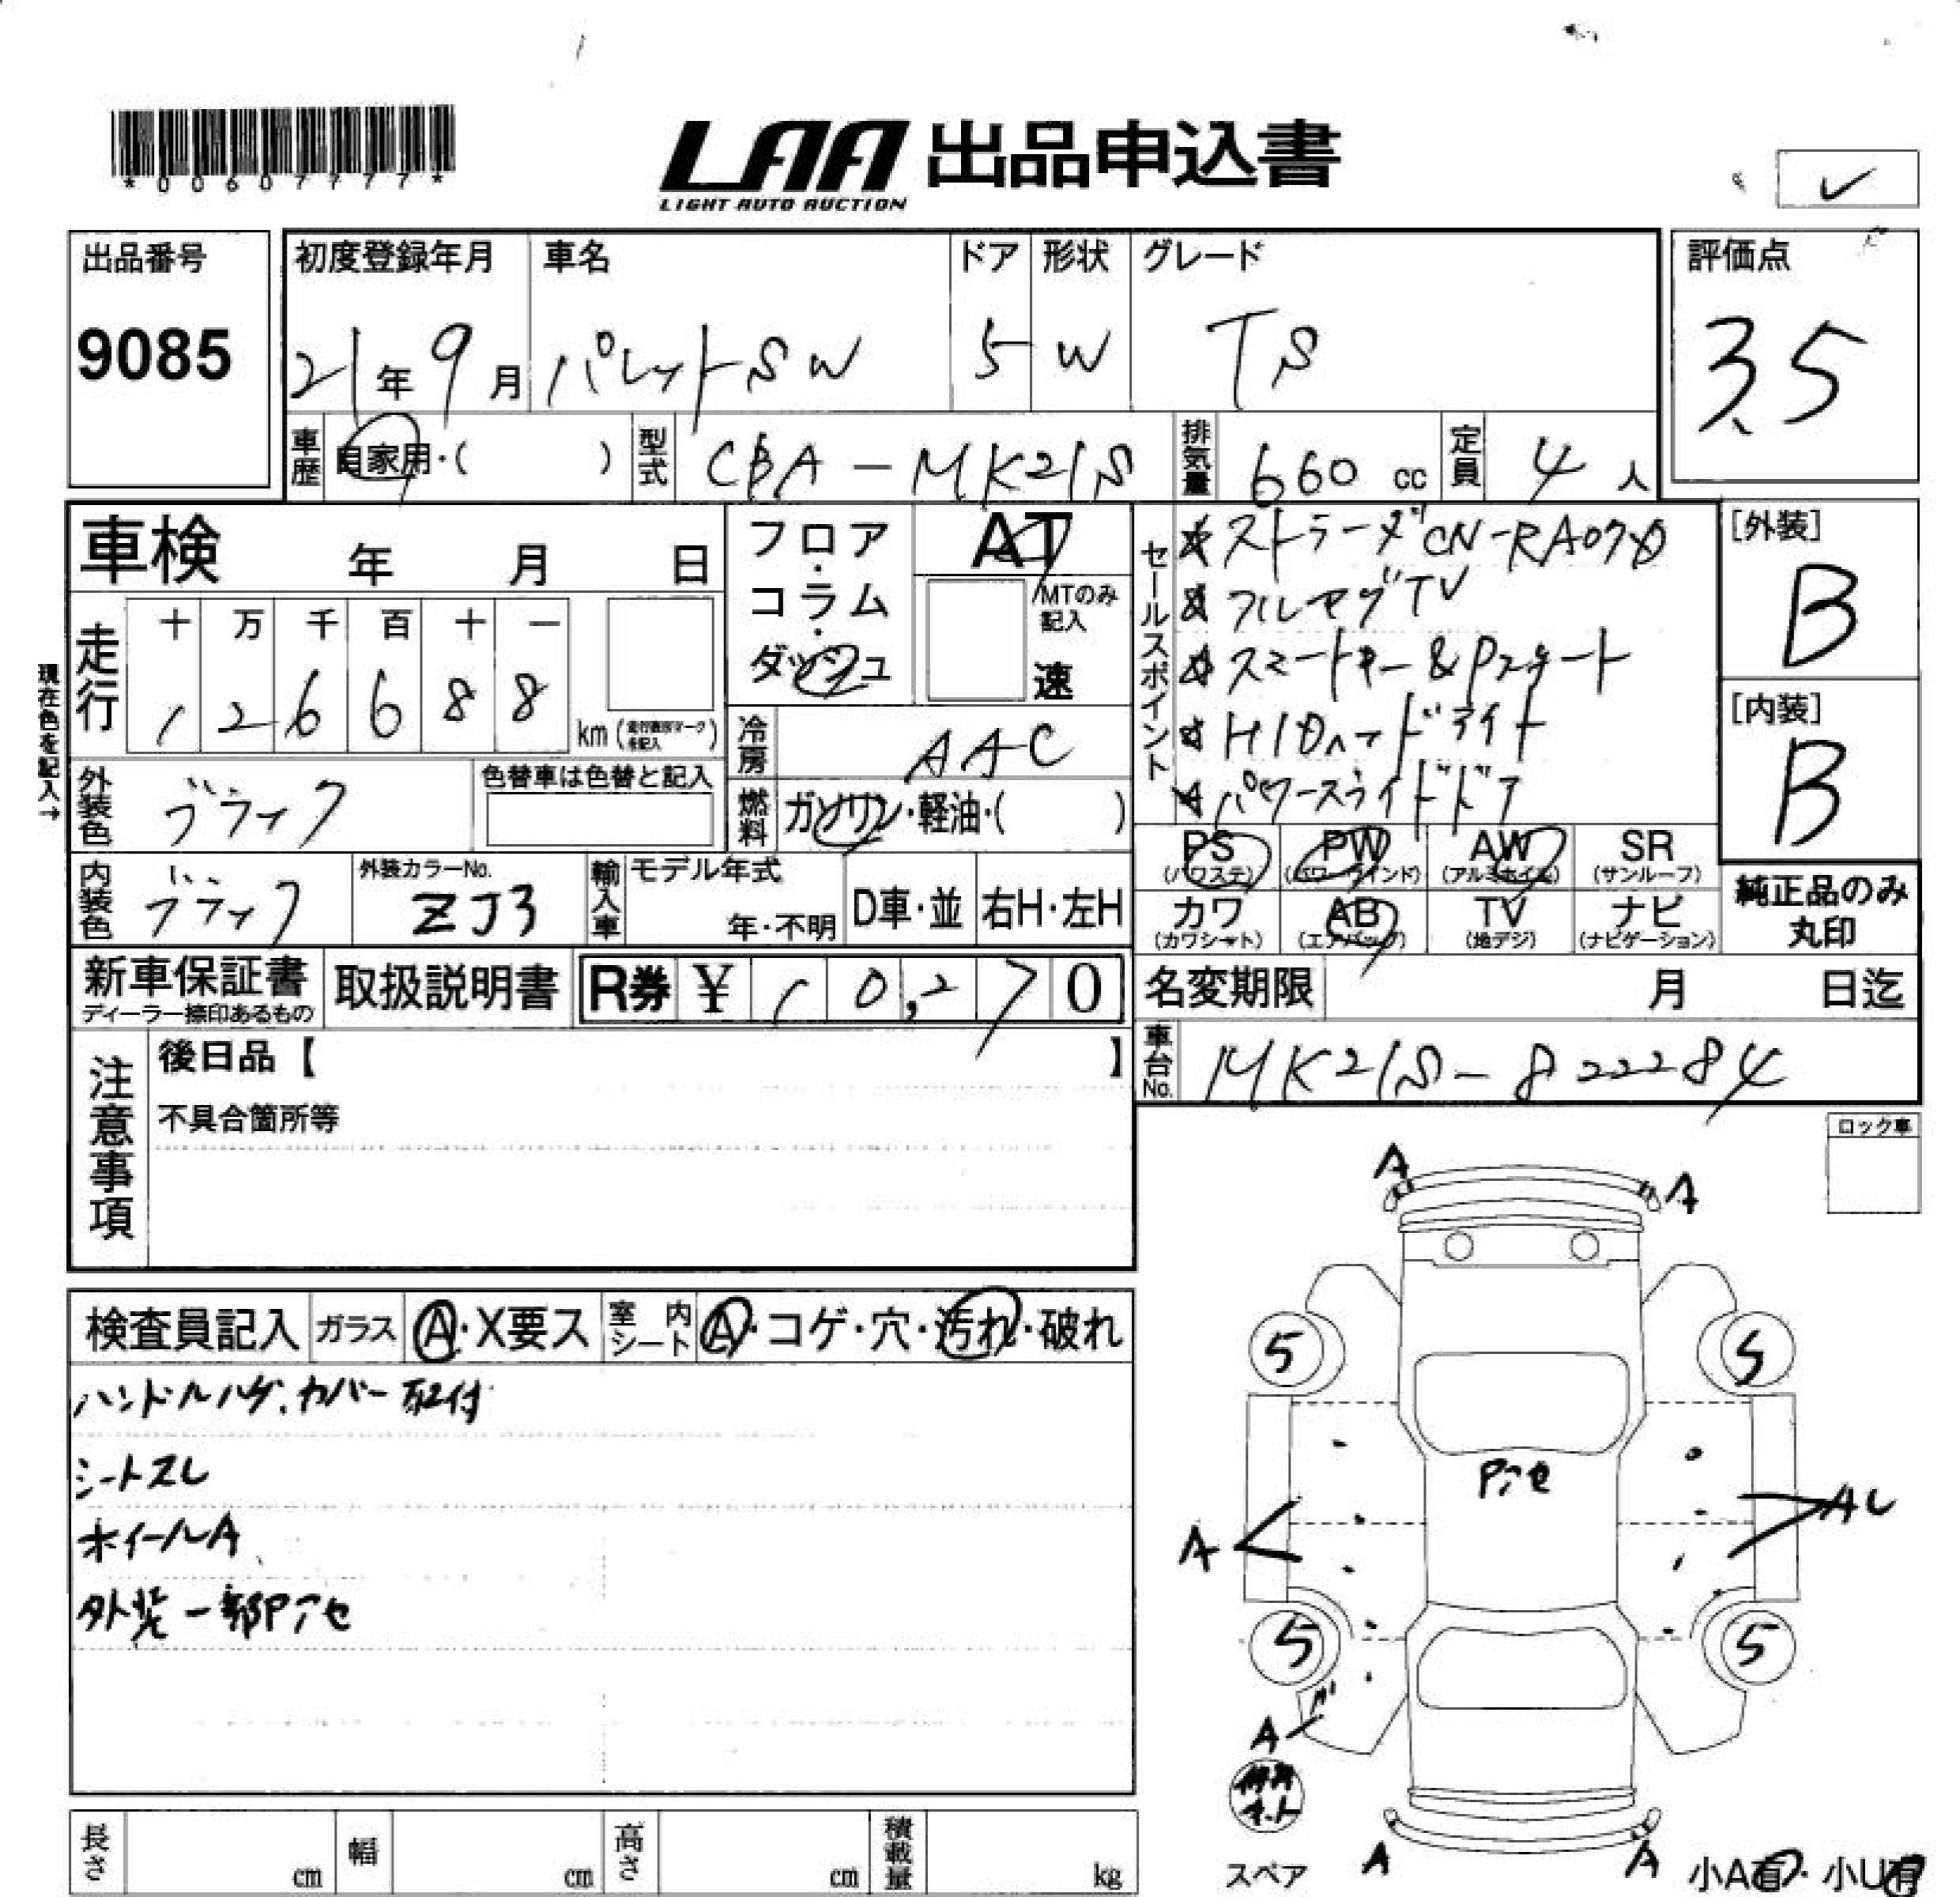 *00607777*
LAA 出品申込書
LIGHT AUTO AUCTION
✓
出品番号
9085
初度登録年月
21年9月
車名
パレットSW
ドア
5
形状
W
グレード
TS
評価点
3.5
車歴 自家用・( )
型式 CBA-MK21S
排気量 660 cc
定員 4人
車検 年 月 日
フロア・コラム・ダッシュ
AT
MTのみ記入
速
セールスポイント
☆ストラーダCN-RA07D
☆フルセグTV
☆スマートキー&Pスタート
☆HIDヘッドライト
☆パワースライドドア
[外装]
B
[内装]
B
現在色を記入→
走行
十 万 千 百 十 一
1 2 6 6 8 8
km
冷房 AAC
燃料 ガソリン・軽油・( )
外装色 ブラック
色替車は色替と記入
内装色 ブラック
外装カラーNo.
ZJ3
輸入車
モデル年式
年・不明
D車・並
右H・左H
PS (パワステ)
PW (パワーウインド)
AW (アルミホイル)
SR (サンルーフ)
カワ (カワシート)
AB (エアバッグ)
TV (地デジ)
ナビ (ナビゲーション)
純正品のみ
丸印
新車保証書
ディーラー捺印あるもの
取扱説明書
R券 ¥ 10,270
名変期限 月 日迄
車台No. MK21S-822284
注意事項
後日品【 】
不具合箇所等
ロック車
検査員記入
ガラス A・X要ス
室内シート A・コゲ・穴・汚れ・破れ
ハンドルハゲ、カバー取付
シートスレ
ホイールA
外装一部Pアセ
A
A
5
5
Pアセ
A
AU
5
5
A
A
A
スペア
小A有・小U有
長さ cm
幅 cm
高さ cm
積載量 kg